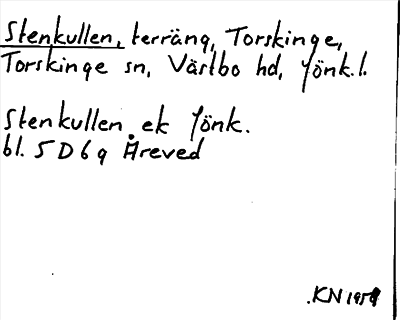 Stenkullen, terräng, Torskinge,
Torskinge sn, Västbo hd, Jönk. l.
Stenkullen ek Jönk.
bl. 5 D 6 g Åreved
KN